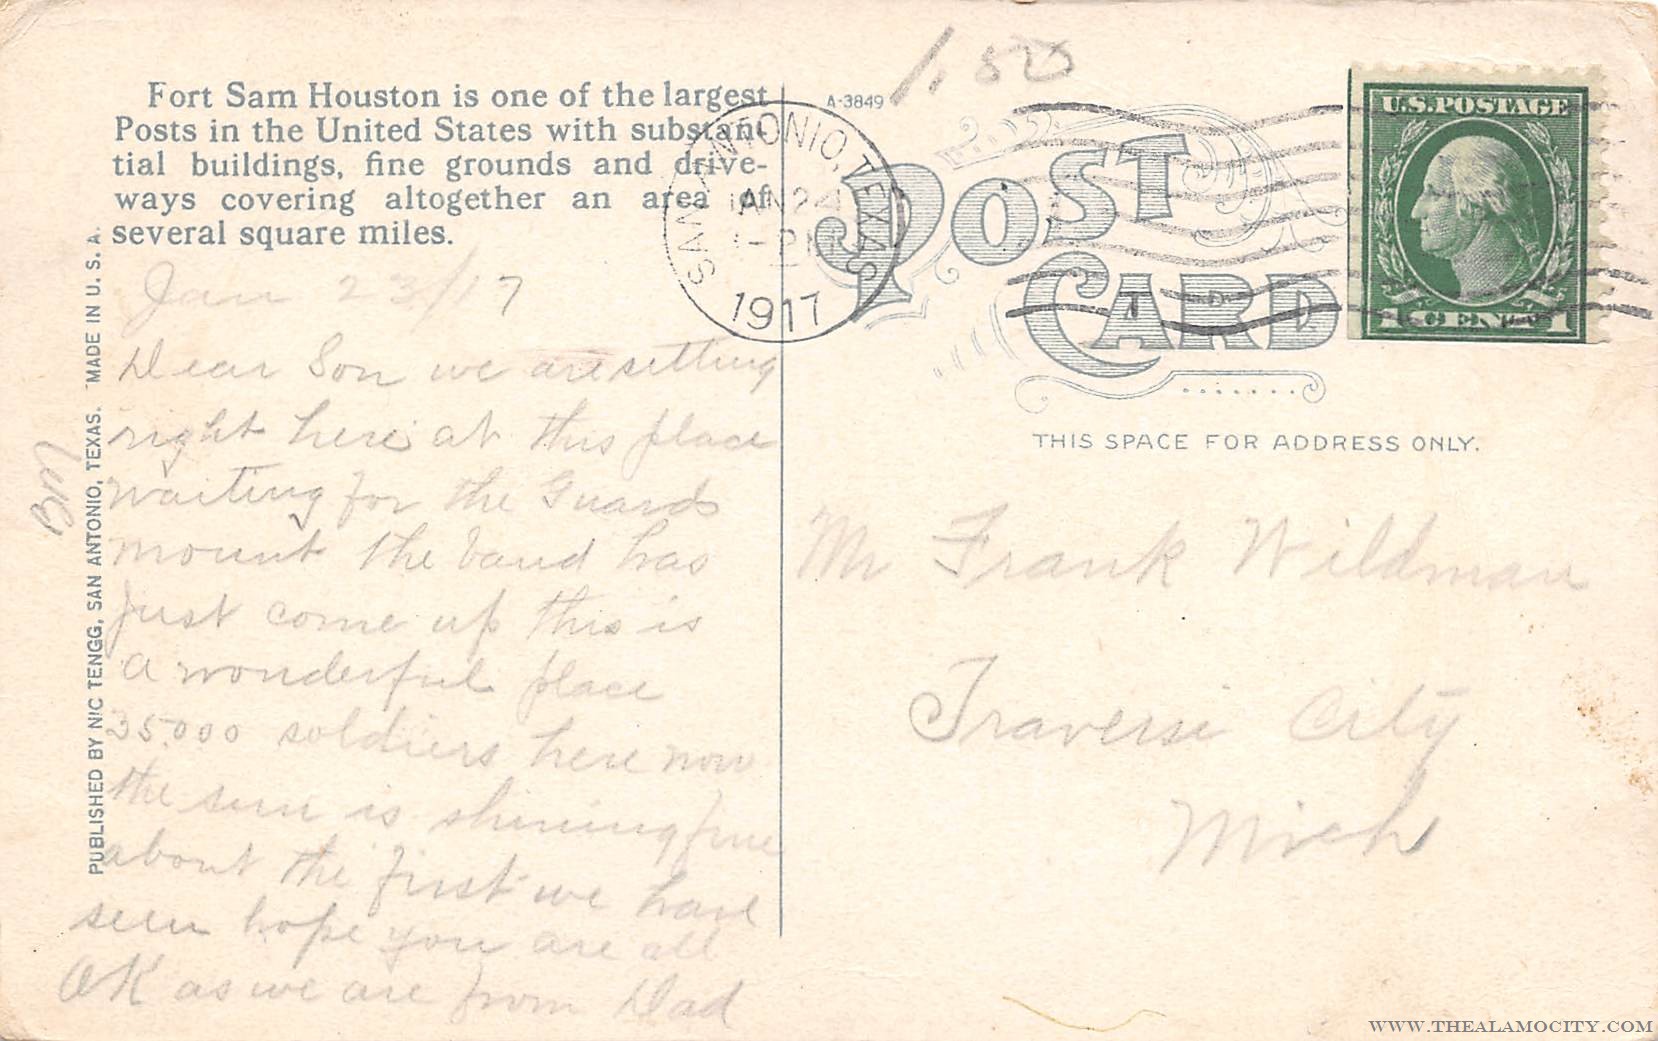 Fort Sam Houston is one of the largest
Posts in the United States with substan-
tial buildings, fine grounds and drive-
ways covering altogether an area of
several square miles.
Jan 23/17
Dear Son we are setting
right here at this place
waiting for the Guards
mount the band has
just come up this is
a wonderful place
35,000 soldiers here now
the sun is shining fine
about the first we have
seen hope you are all
OK as we are from Dad
PUBLISHED BY NIC TENGG, SAN ANTONIO, TEXAS. MADE IN U. S. A.
A-3849
1.50
SAN ANTONIO, TEXAS
JAN 24
1917
POST
CARD
U.S. POSTAGE
1 CENT 1
THIS SPACE FOR ADDRESS ONLY.
Mr Frank Wildman
Traverse City
Mich
WWW.THEALAMOCITY.COM